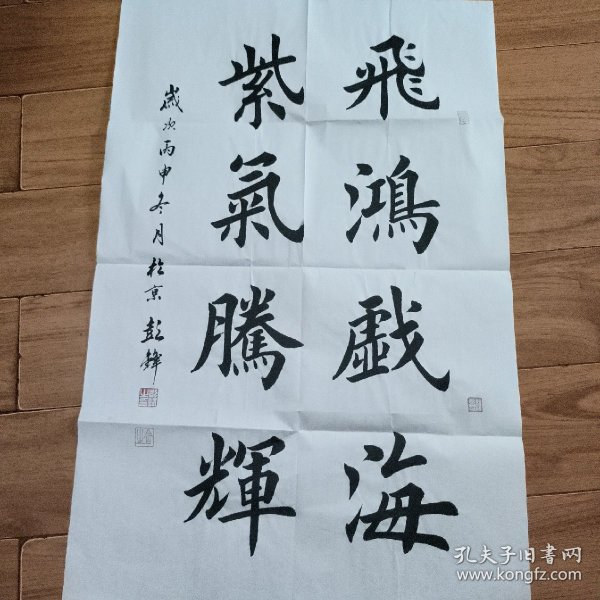 飛鴻戲海
紫氣騰輝
歲次丙申冬月於京彭鋒
孔夫子旧书网
www.kongfz.com